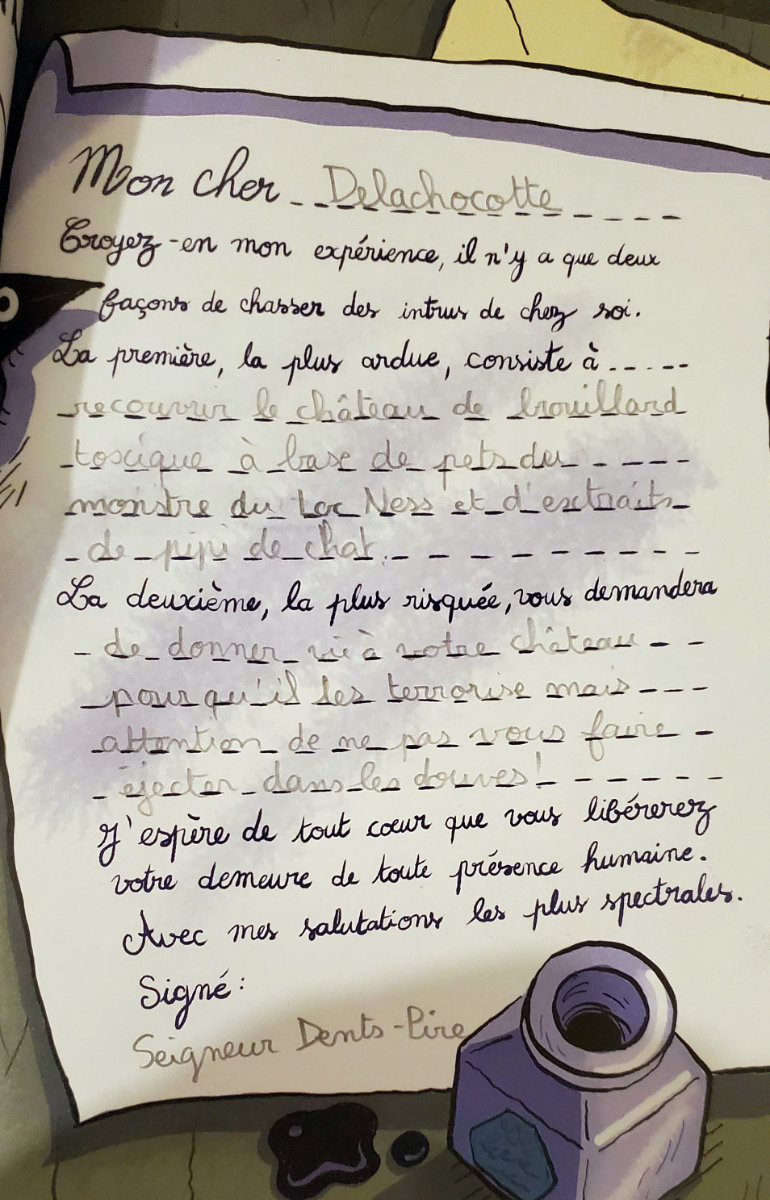 Mon cher Delachocotte
Croyez-en mon expérience, il n'y a que deux
façons de chasser des intrus de chez soi.
La première, la plus ardue, consiste à
recouvrir le château de brouillard
toxique à base de pets du
monstre du Loc Ness et d'extraits
de pipi de chat.
La deuxième, la plus risquée, vous demandera
de donner vie à votre château
pour qu'il les terrorise mais
attention de ne pas vous faire
éjecter dans les douves!
J'espère de tout cœur que vous libérerez
votre demeure de toute présence humaine.
Avec mes salutations les plus spectrales.
Signé:
Seigneur Dents-Pire